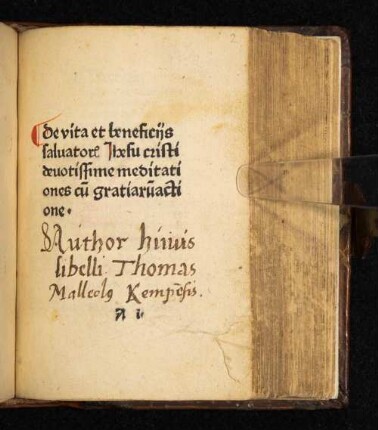 2
de vita et beneficijs
saluatorē Jhesu cristi
deuotissime meditati
ones cū gratiarūacti
one.
Author huius
libelli Thomas
Malleolꝰ Kempēsis.
A i